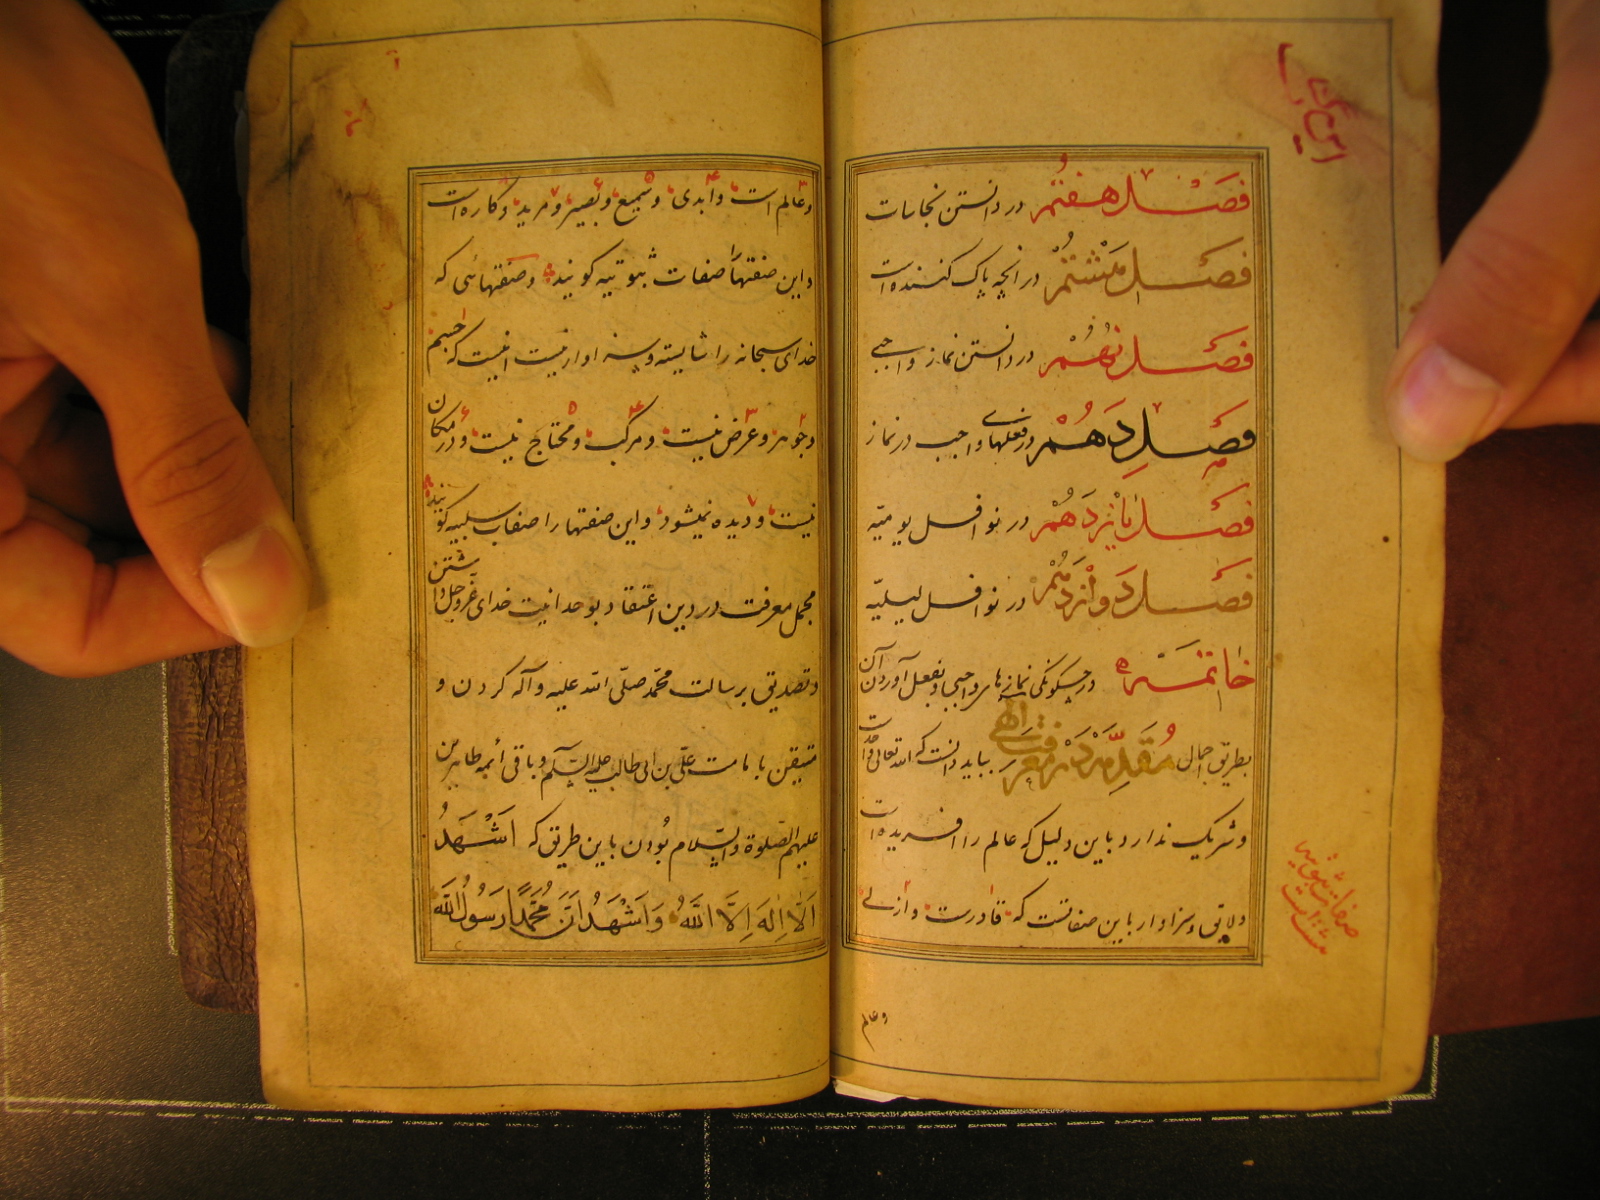 فصل هفتم در دانستن نجاسات
فصل هشتم در آنچه پاک کننده است
فصل نهم در دانستن نماز واجبی
فصل دهم در فعلهای واجب در نماز
فصل یازدهم در نوافل یومیّه
فصل دوازدهم در نوافل لیلیّه
خاتمه در چگونگی نمازهای واجبی و بفعل آوردن آن
بطریق اجمال مقدّمه در معرفت الهی بباید دانست که الله تعالی واحد است
و شریک ندارد باین دلیل که عالم را آفریده است
و لایق و سزاوار باین صفاتست که قادرست و ازلی
صفات ثبوتیه هشت است
و عالم
و عالم است و ابدی و سمیع و بصیر و مرید و کاره است
و این صفتها صفات ثبوتیه گویند و صفتهائی که
خدای سبحانه را شایسته و سزاوار نیست اینست که جسم
و جوهر و عرض نیست و مرکب و محتاج نیست و در مکان
نیست و دیده نمیشود و این صفتها را صفات سلبیه گویند
مجمل معرفت در دین اعتقاد بوحدانیت خدای عزّ و جلّ داشتن
و تصدیق برسالت محمّد صلّی الله علیه و آله کردن و
متیقن بامامت علّی بن ابی طالب علیه السّلم و باقی ائمه طاهرین
علیهم الصّلوة و السّلام بودن باین طریق که اَشْهَدُ
اَلّا اِلهَ اِلَّا اللَّهُ وَ اَشْهَدُ اَنَّ مُحَمَّداً رَسُولُ اللَّه